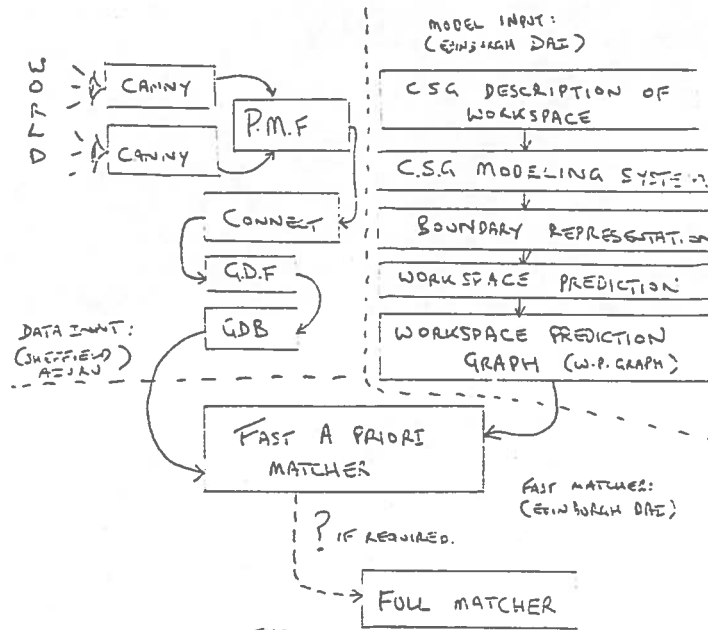 MODEL INPUT:
(EDINBURGH DAI)
CANNY
CANNY
P.M.F
CONNECT
G.D.F
GDB
DATA INPUT:
(SHEFFIELD)
C.S.G DESCRIPTION OF
WORKSPACE
C.S.G MODELING SYSTEM
BOUNDARY REPRESENTATION
WORKSPACE PREDICTION
WORKSPACE PREDICTION
GRAPH (W.P. GRAPH)
FAST A PRIORI
MATCHER
FAST MATCHER:
(EDINBURGH DAI)
? IF REQUIRED.
FULL MATCHER